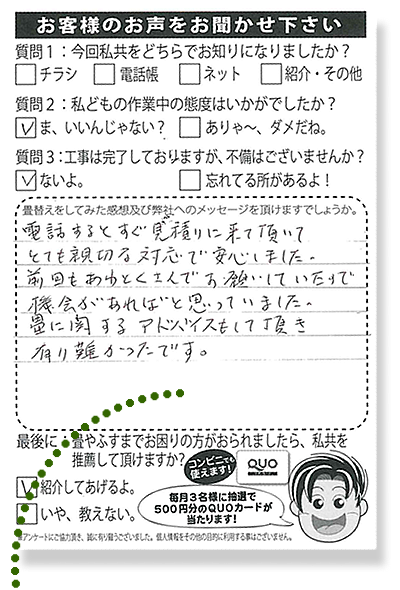 お客様のお声をお聞かせ下さい
質問1：今回私共をどちらでお知りになりましたか？
チラシ 電話帳 ネット 紹介・その他
質問2：私どもの作業中の態度はいかがでしたか？
ま、いいんじゃない？ ありゃ〜、ダメだね。
質問3：工事は完了しておりますが、不備はございませんか？
ないよ。 忘れてる所があるよ！
畳替えをしてみた感想及び弊社へのメッセージを頂けますでしょうか。
電話するとすぐ見積りに来て頂いて
とても親切な対応で安心しました。
前回もあわとくさんでお願いしていたので
機会があればと思っていました。
畳に関するアドバイスもして頂き
有り難かったです。
最後に：畳やふすまでお困りの方がおられましたら、私共を
推薦して頂けますか？
コンビニでも
使えます！
QUO
紹介してあげるよ。
いや、教えない。
毎月3名様に抽選で
500円分のQUOカードが
当たります！
※アンケートにご協力頂き、誠に有り難うございました。個人情報をその他の目的に利用する事はございません。